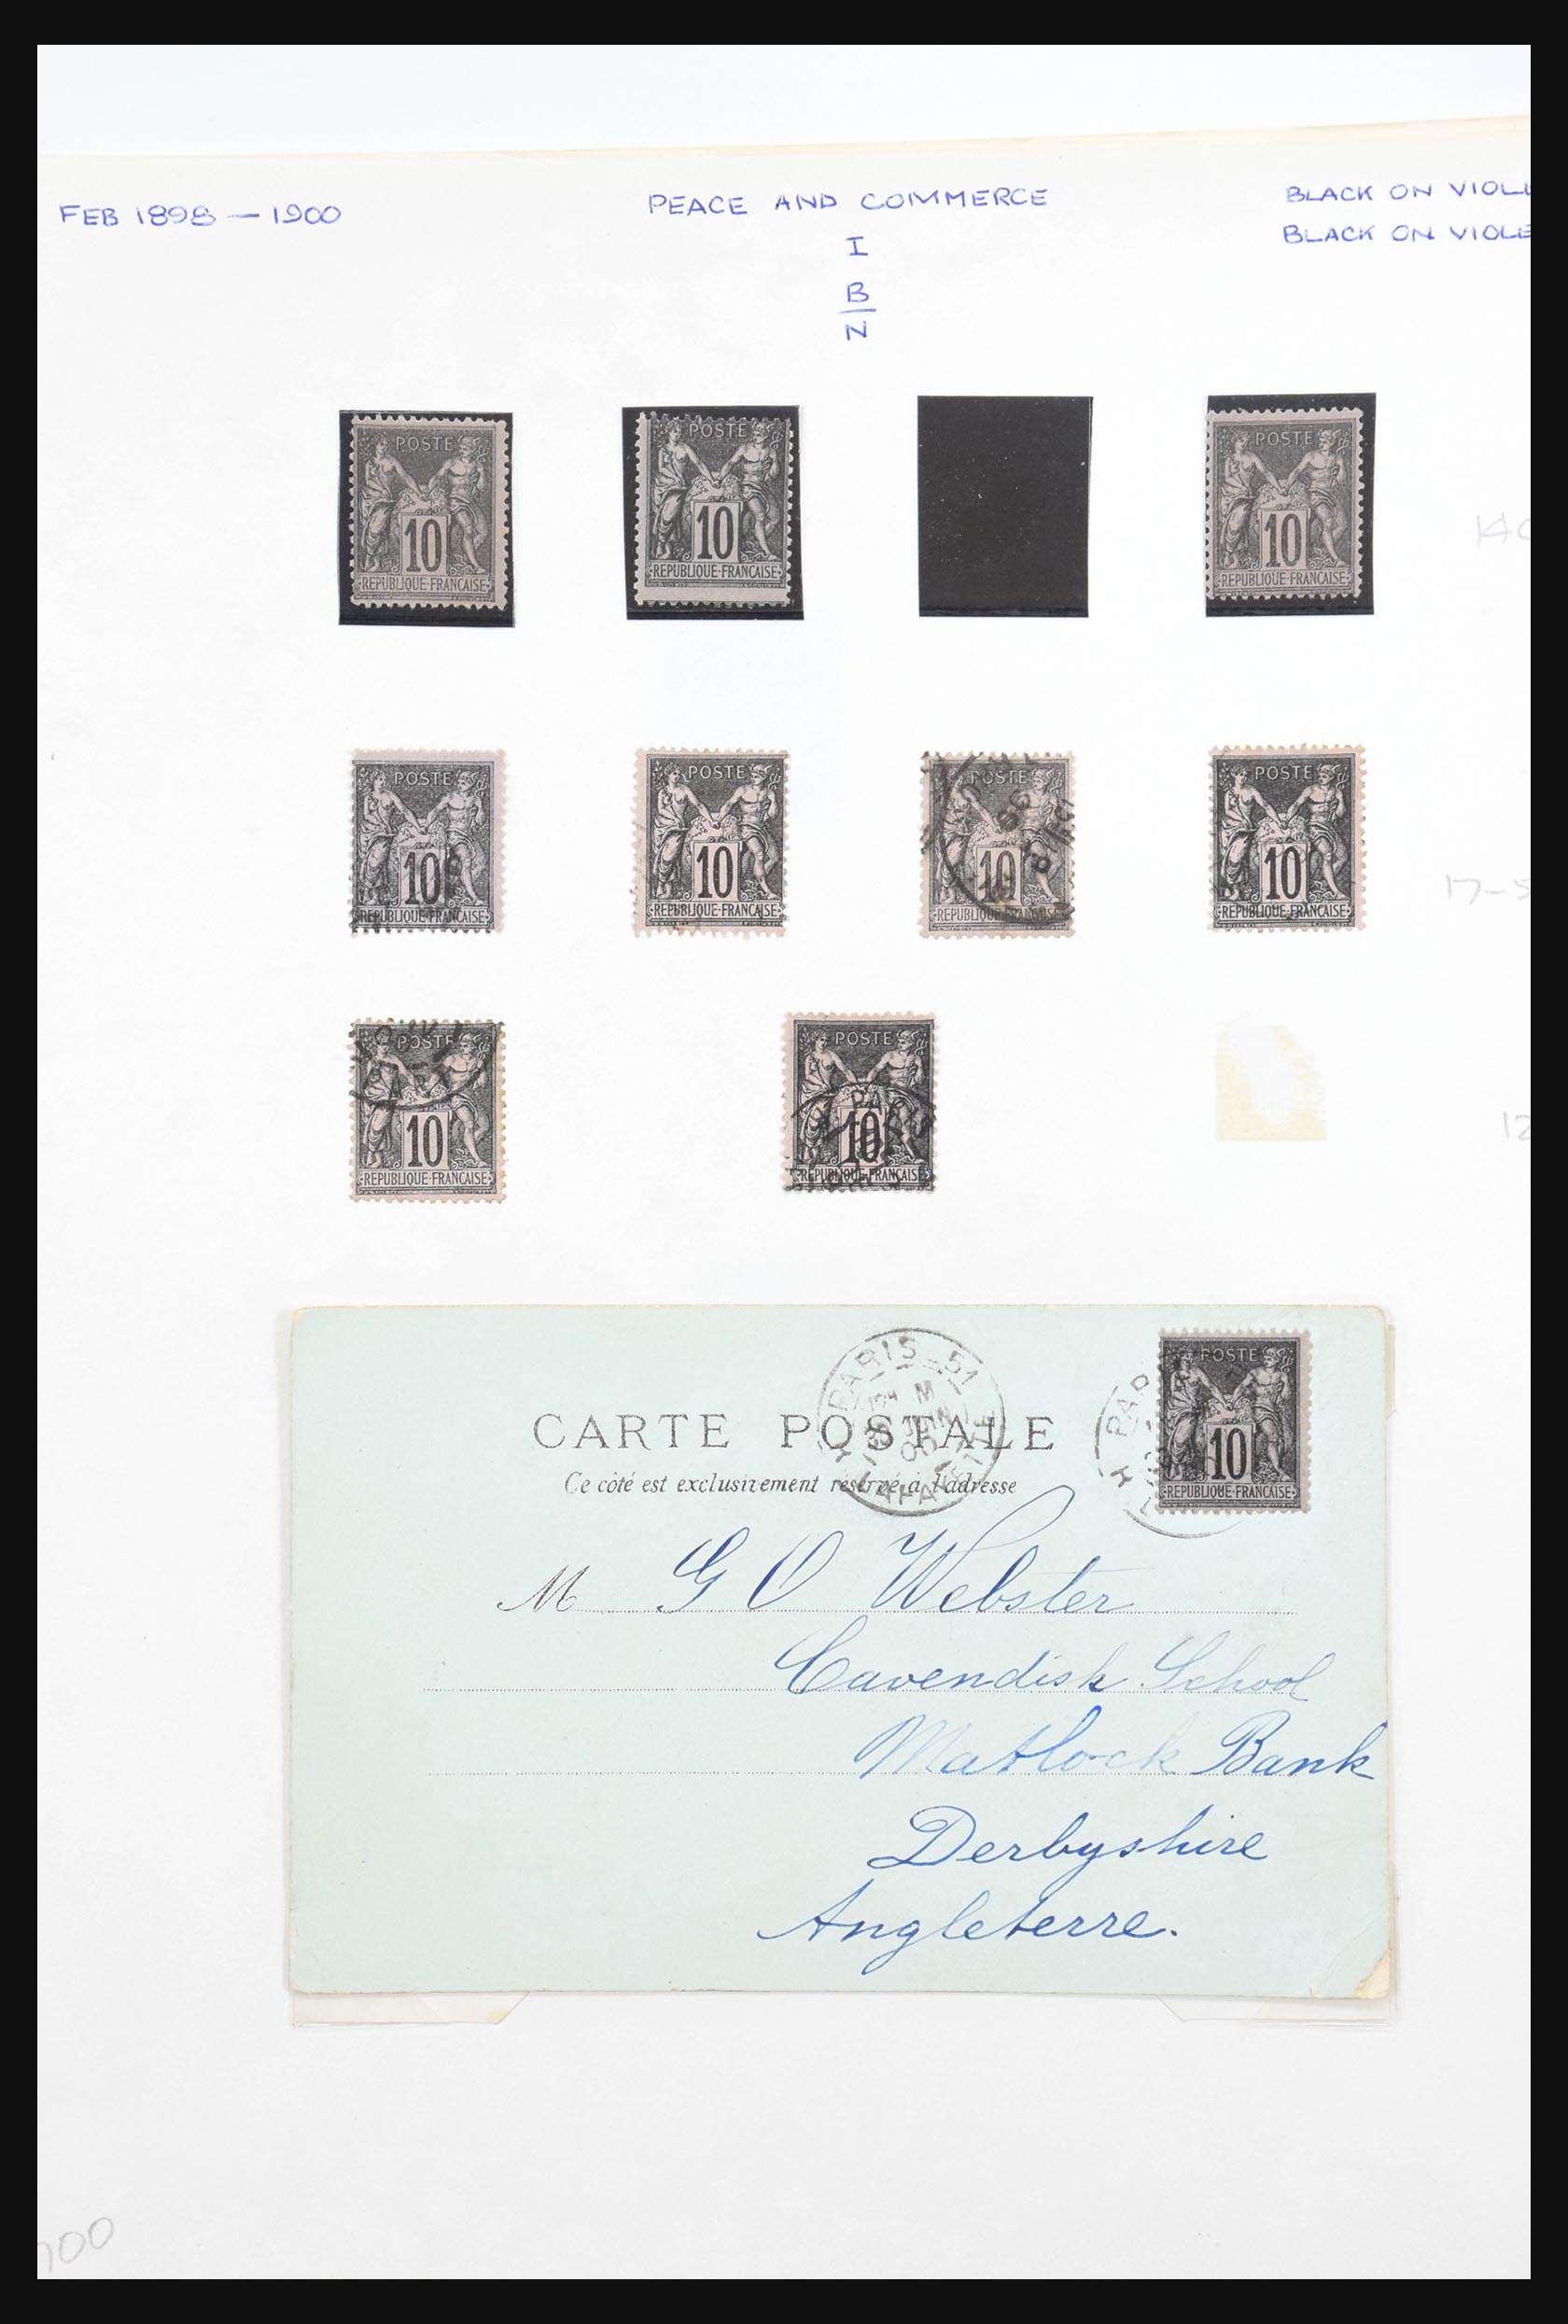 FEB 1898 — 1900
PEACE AND COMMERCE
I
B
N
BLACK ON VIOL
BLACK ON VIOLE
POSTE
10
REPUBLIQUE-FRANCAISE
POSTE
10
REPUBLIQUE-FRANCAISE
POSTE
10
REPUBLIQUE-FRANCAISE
POSTE
10
REPUBLIQUE-FRANCAISE
POSTE
10
REPUBLIQUE-FRANCAISE
POSTE
10
REPUBLIQUE-FRANCAISE
POSTE
10
REPUBLIQUE-FRANCAISE
17-5
POSTE
10
REPUBLIQUE-FRANCAISE
POSTE
10
REPUBLIQUE-FRANCAISE
PARIS
12
PARIS 51
POSTE
10
REPUBLIQUE-FRANCAISE
CARTE POSTALE
Ce côté est exclusivement réservé à l'adresse
M G O Webster
Cavendish School
Matlock Bank
Derbyshire
Angleterre.